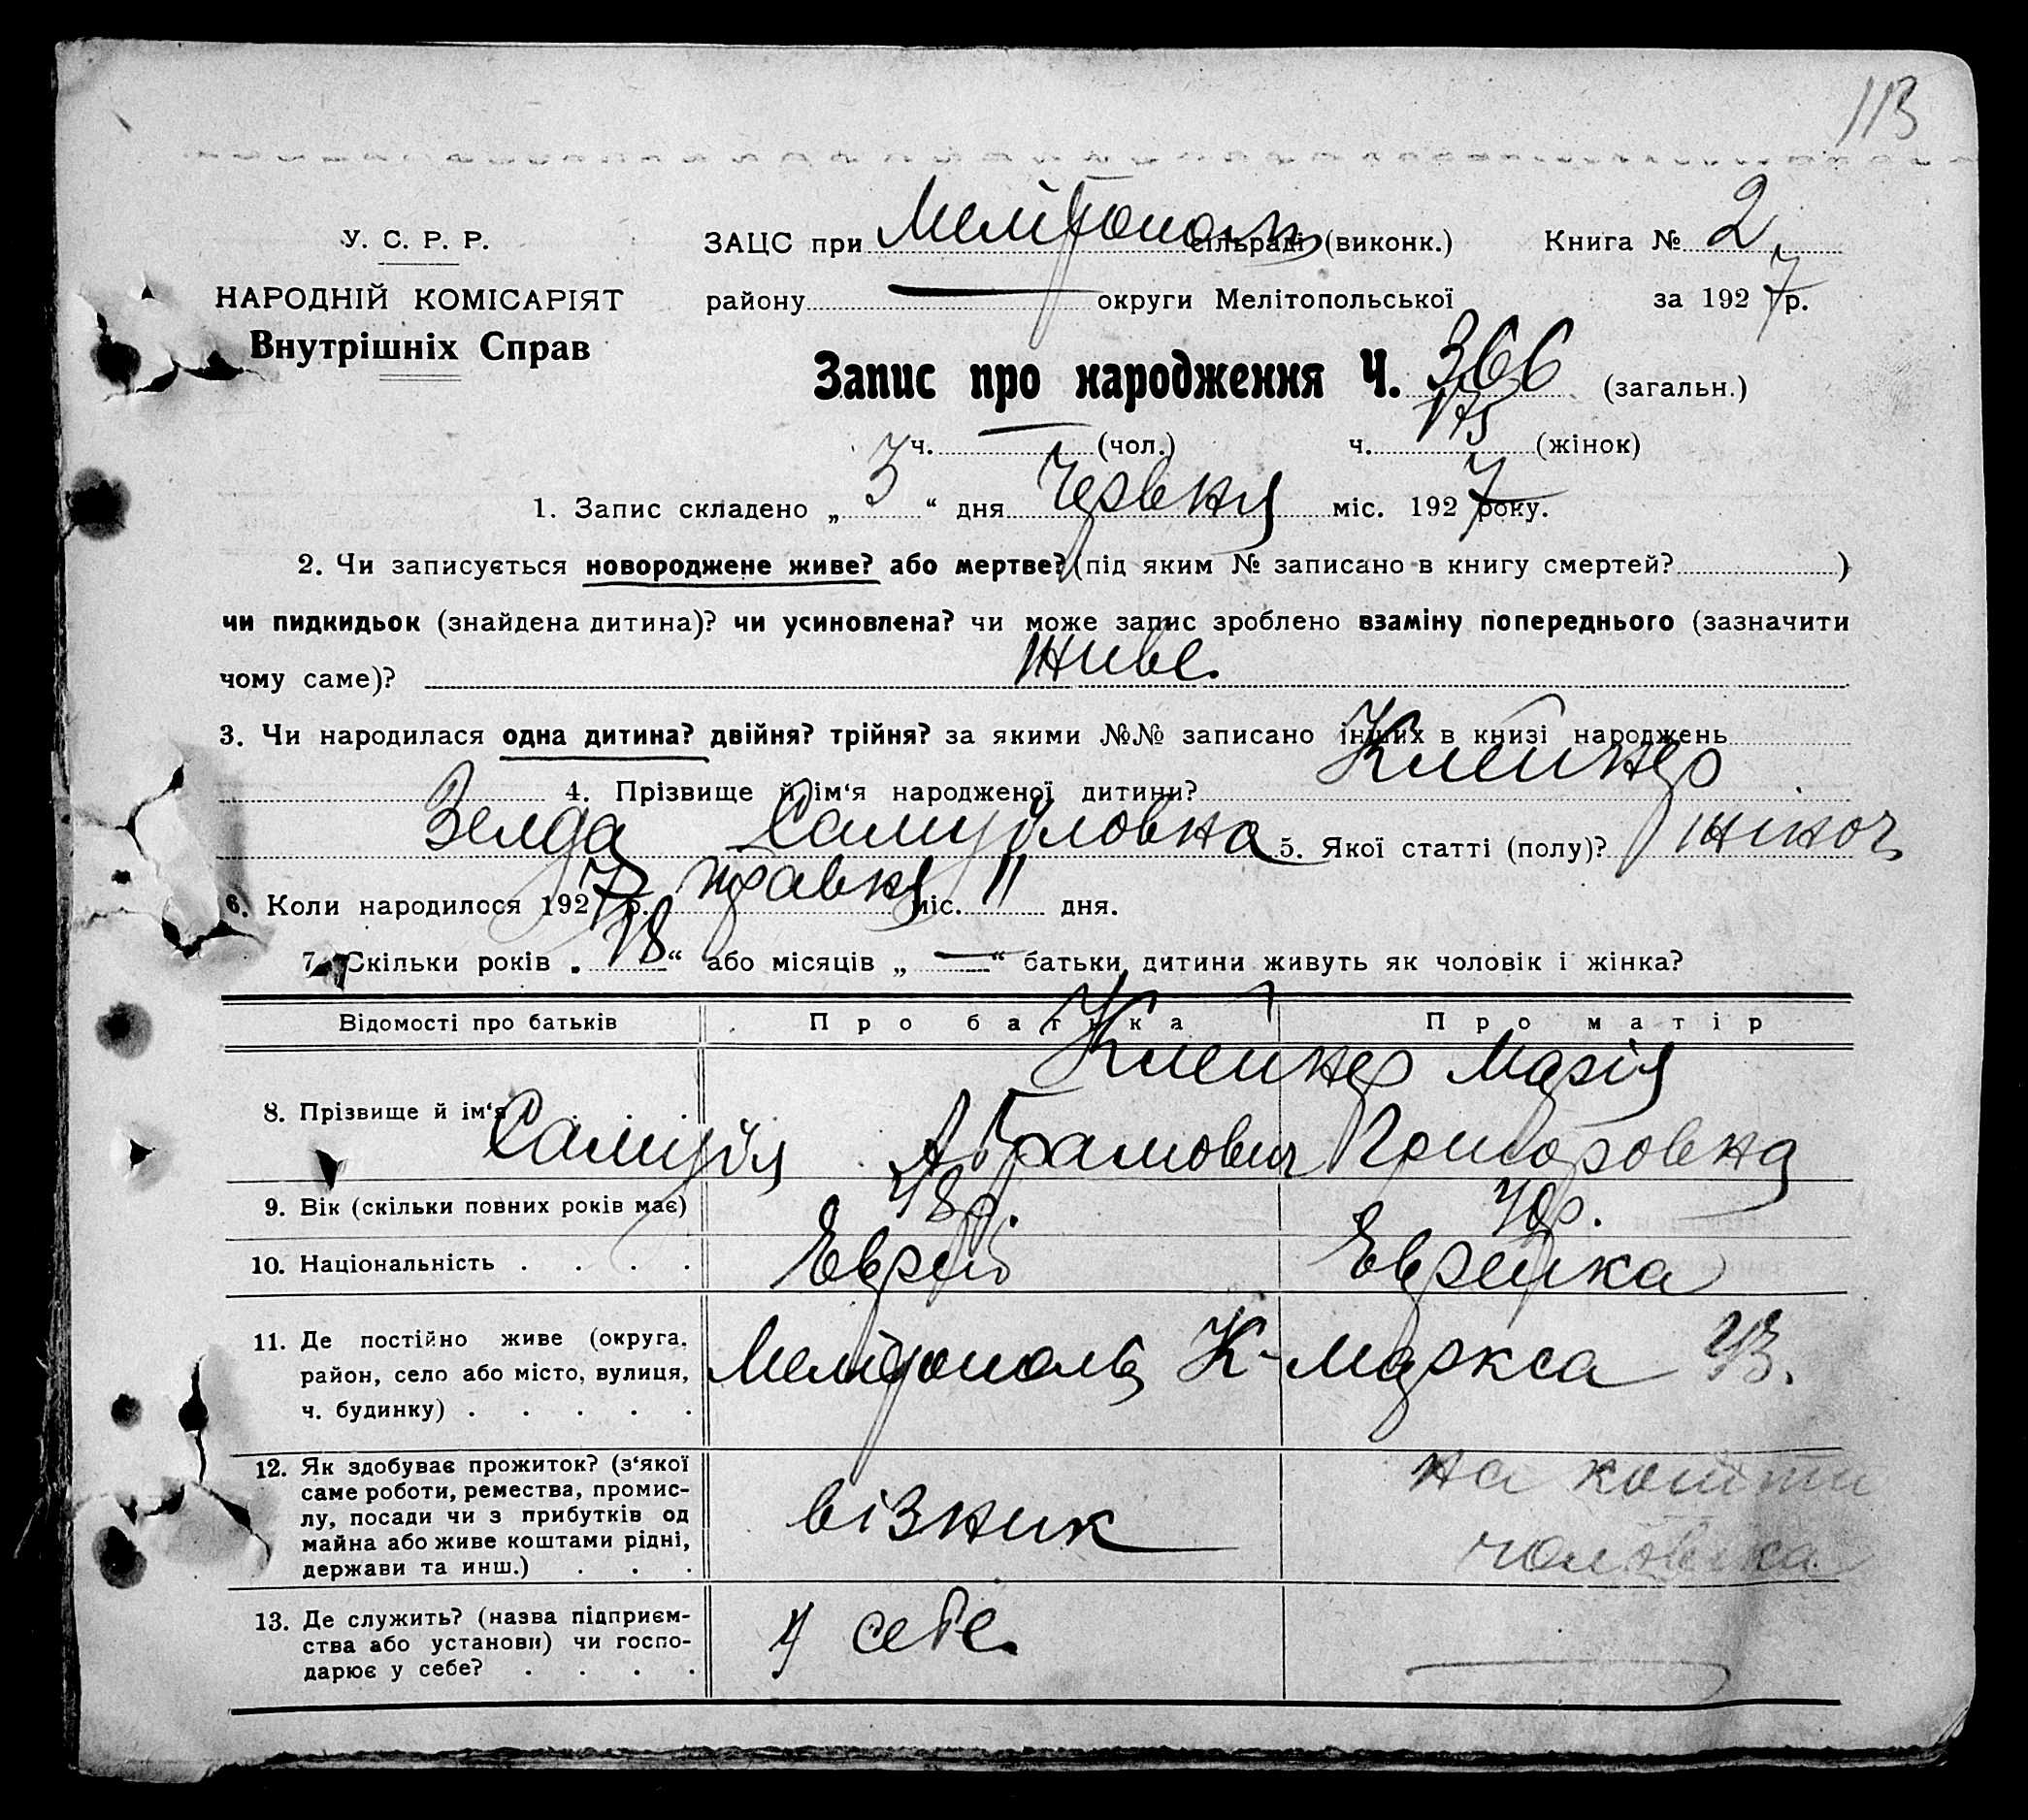 113
У. С. Р. Р.
НАРОДНІЙ КОМІСАРІЯТ
Внутрішніх Справ
ЗАЦС при Мелітополь сільраді (виконк.) Книга № 2
району — округи Мелітопольської за 1927 р.
Запис про народження Ч. 366 (загальн.)
ч. — (чол.) ч. 175 (жінок)
1. Запис складено „ 3 “ дня Червня міс. 1927 року.
2. Чи записується новороджене живе? або мертве? (під яким № записано в книгу смертей? )
чи пидкидьок (знайдена дитина)? чи усиновлена? чи може запис зроблено взаміну попереднього (зазначити
чому саме)? Живе.
3. Чи народилася одна дитина? двійня? трійня? за якими №№ записано інших в книзі народжень
4. Прізвище й ім‘я народженої дитини? Клейнер
Зелда Самуйловна 5. Якої статті (полу)? жіноч.
6. Коли народилося 1927 р. травня міс. 11 дня.
7. Скільки років „ 18 “ або місяців „ — “ батьки дитини живуть як чоловік і жінка?
Відомості про батьків Про батька Про матір
Клейнер Марія
8. Прізвище й ім‘я Самуйл Абрамович Григоровна
9. Вік (скільки повних років має) 48 р. 40 р.
10. Національність . . . . Еврей Еврейка
11. Де постійно живе (округа,
район, село або місто, вулиця, Мелітополь К-Маркса 43.
ч. будинку) . . . . .
12. Як здобуває прожиток? (з‘якої на кошти
саме роботи, ремества, промис-
лу, посади чи з прибутків од візник
майна або живе коштами рідні, чоловіка
держави та инш.) . . .
13. Де служить? (назва підприєм-
ства або установи) чи госпо- у себе —
дарює у себе? . . . .